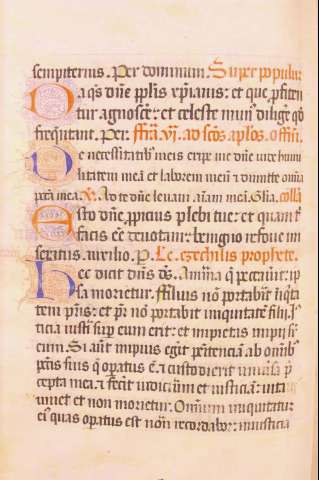 sempiternis. Per dominum. Super populū
Da q̄s dn̄e pplīs xp̄ianis: et que profiten
tur agnoscer̄: et celeste mun⁹ diligere qd̄
frequītant. Per. ffr̄a. vj. ad scōs aplos. offm̄.
De necessitatib⁹ meis eripe me dn̄e vide humi
litatem meā et laborem meū ⁊ dimitte omīa
pctā mea. ℣. Ad te dn̄e leuaui aīam meā. Gl̄ia. collā
Esto dn̄e ꝓpicius plebi tue: et quam t̄
facis eē deuotam: benigno refoue mi
seratus auxilio. P̄ Lc̄. ezechielis prophete.
Hec dicit dn̄s d̄s. Anima q̄ peccauit: ip
sa morietur. ffilius nō portabit īiqͥta
tem pr̄is: et pr̄ nō portabit iniquitatē filij. Ius
ticia iusti sup̄ eum erit: et impietas impij sup̄
eum. Si aūt impius egit̄ penitenciā ab omīb⁹
pctīs suis que operatus ē: ⁊ custodierit vniūsa p̄
cepta mea: ⁊ fecit iudicium et iusticiā: vita
viuet et non morietur. Omnium iniquitatum
ei⁹ quas operatus est non recordabor: in iusticia